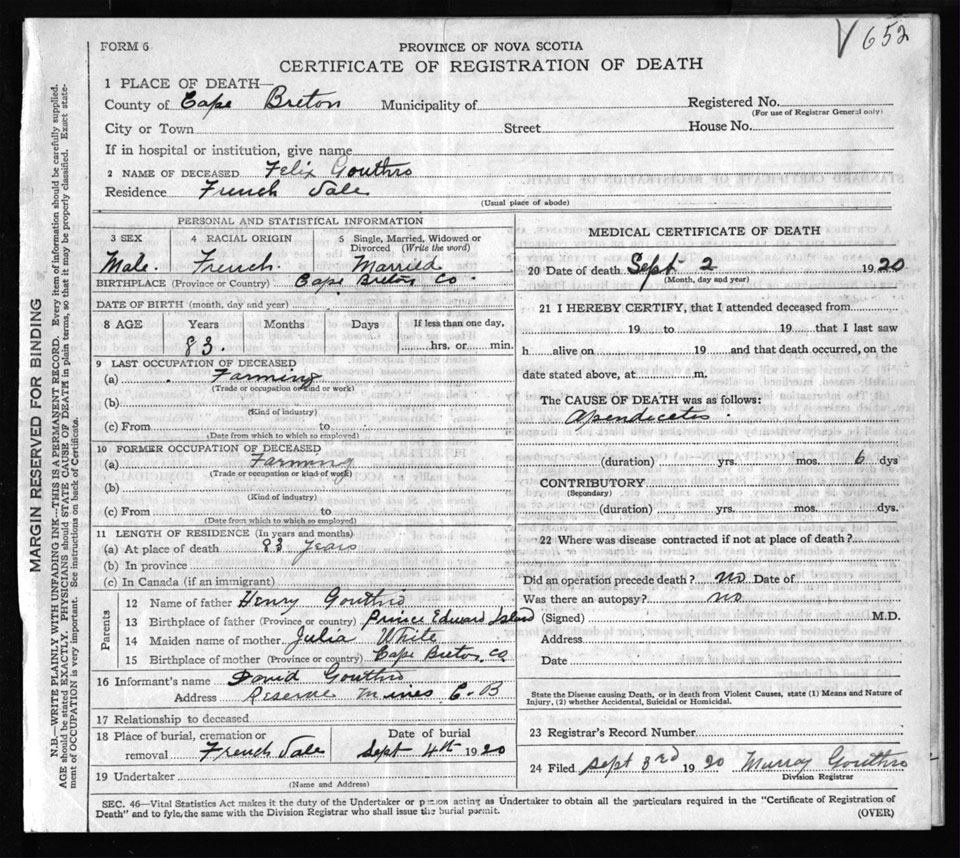 V 652
FORM 6
PROVINCE OF NOVA SCOTIA
CERTIFICATE OF REGISTRATION OF DEATH
1 PLACE OF DEATH—
County of Cape Breton Municipality of Registered No.
(For use of Registrar General only)
City or Town Street House No.
If in hospital or institution, give name
2 NAME OF DECEASED Felix Gouthro
Residence French Vale
(Usual place of abode)
PERSONAL AND STATISTICAL INFORMATION
3 SEX 4 RACIAL ORIGIN 5 Single, Married, Widowed or
Divorced (Write the word)
Male. French. Married
BIRTHPLACE (Province or Country) Cape Breton Co
DATE OF BIRTH (month, day and year)
8 AGE Years Months Days If less than one day,
83. hrs. or min.
9 LAST OCCUPATION OF DECEASED
(a) Farming
(Trade or occupation or kind of work)
(b)
(Kind of industry)
(c) From to
(Date from which to which so employed)
10 FORMER OCCUPATION OF DECEASED
(a) Farming
(Trade or occupation or kind of work)
(b)
(Kind of industry)
(c) From to
(Date from which to which so employed)
11 LENGTH OF RESIDENCE (In years and months)
(a) At place of death 83 years
(b) In province
(c) In Canada (if an immigrant)
Parents
12 Name of father Henry Gouthro
13 Birthplace of father (Province or country) Prince Edward Island
14 Maiden name of mother Julia White
15 Birthplace of mother (Province or country) Cape Breton Co
16 Informant's name David Gouthro
Address Reserve Mines C. B
17 Relationship to deceased
18 Place of burial, cremation or Date of burial
removal French Vale Sept 4th 1920
19 Undertaker
(Name and Address)
MEDICAL CERTIFICATE OF DEATH
20 Date of death Sept 2 1920
(Month, day and year)
21 I HEREBY CERTIFY, that I attended deceased from
19 to 19 that I last saw
h alive on 19 and that death occurred, on the
date stated above, at m.
The CAUSE OF DEATH was as follows:
Apendicetis
(duration) yrs. mos. 6 dys
CONTRIBUTORY
(Secondary)
(duration) yrs. mos. dys.
22 Where was disease contracted if not at place of death?
Did an operation precede death? no Date of
Was there an autopsy? no
(Signed) M.D.
Address
Date
State the Disease causing Death, or in death from Violent Causes, state (1) Means and Nature of
Injury, (2) whether Accidental, Suicidal or Homicidal.
23 Registrar's Record Number
24 Filed Sept 3rd 1920 Murray Gouthro
Division Registrar
SEC. 46—Vital Statistics Act makes it the duty of the Undertaker or person acting as Undertaker to obtain all the particulars required in the "Certificate of Registration of
Death" and to fyle, the same with the Division Registrar who shall issue the burial permit. (OVER)
MARGIN RESERVED FOR BINDING
N.B.—WRITE PLAINLY WITH UNFADING INK—THIS IS A PERMANENT RECORD. Every item of information should be carefully supplied.
AGE should be stated EXACTLY. PHYSICIANS should STATE CAUSE OF DEATH in plain terms, so that it may be properly classified. Exact state-
ment of OCCUPATION is very important. See instructions on back of Certificate.